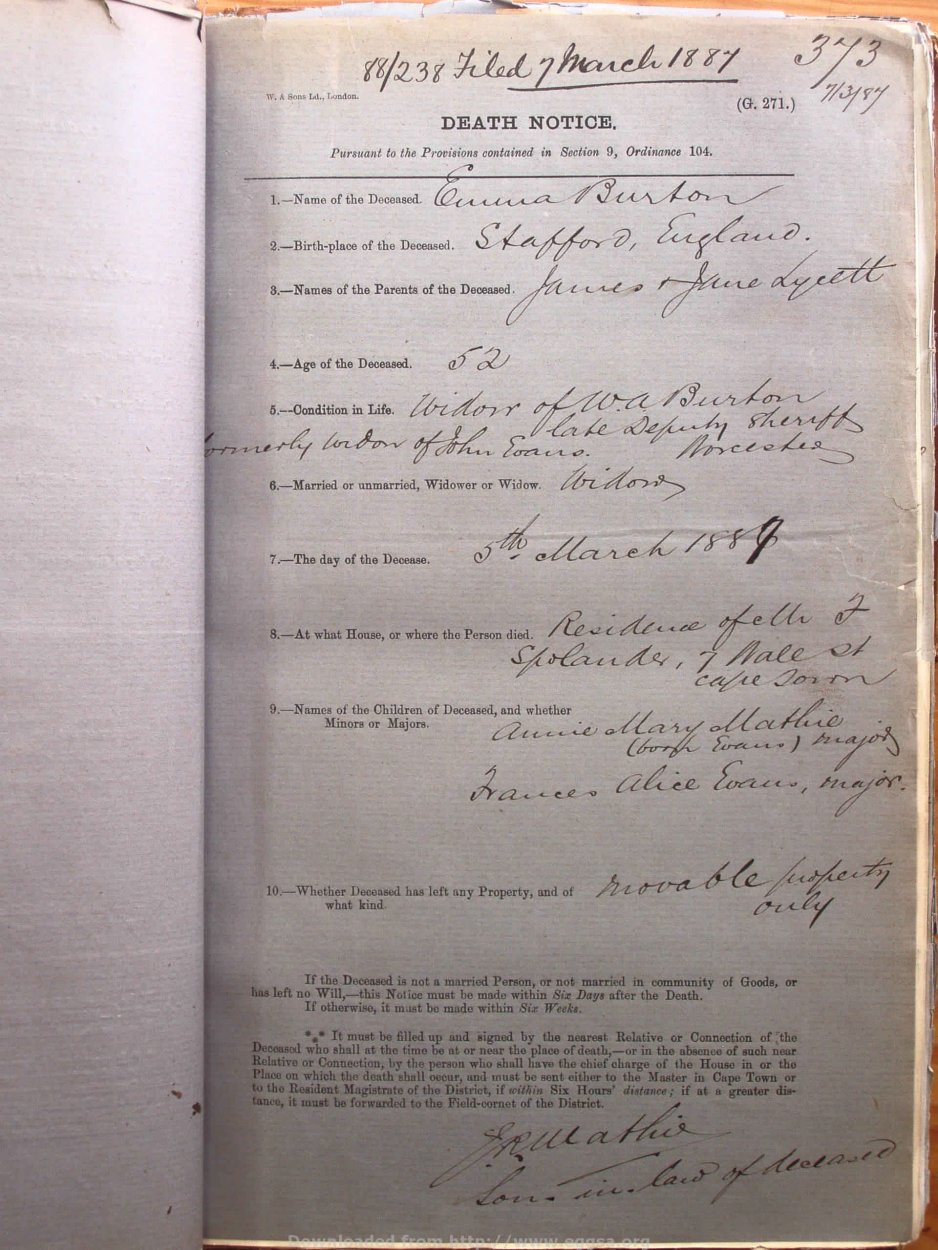 88/238 Filed 7 March 1887
373
7/3/87
W. & Sons Ld., London.
(G. 271.)
DEATH NOTICE.
Pursuant to the Provisions contained in Section 9, Ordinance 104.
1.—Name of the Deceased. Emma Burton
2.—Birth-place of the Deceased. Stafford, England.
3.—Names of the Parents of the Deceased. James & Jane Lycett
4.—Age of the Deceased. 52
5.—Condition in Life. Widow of W.A Burton
late Deputy Sheriff
formerly widow of John Evans. Worcester
6.—Married or unmarried, Widower or Widow. Widow
7.—The day of the Decease. 5th. March 1887
8.—At what House, or where the Person died. Residence of Mr F
Spolander, 7 Wale St
Cape Town
9.—Names of the Children of Deceased, and whether
Minors or Majors. Annie Mary Mathie
(born Evans) major
Frances Alice Evans, major.
10.—Whether Deceased has left any Property, and of
what kind. movable property
only
If the Deceased is not a married Person, or not married in community of Goods, or
has left no Will,—this Notice must be made within Six Days after the Death.
If otherwise, it must be made within Six Weeks.
*** It must be filled up and signed by the nearest Relative or Connection of the
Deceased who shall at the time be at or near the place of death,—or in the absence of such near
Relative or Connection, by the person who shall have the chief charge of the House in or the
Place on which the death shall occur, and must be sent either to the Master in Cape Town or
to the Resident Magistrate of the District, if within Six Hours' distance; if at a greater dis-
tance, it must be forwarded to the Field-cornet of the District.
J.R. Mathie
Son-in-law of deceased
Downloaded from http://www.eggsa.org